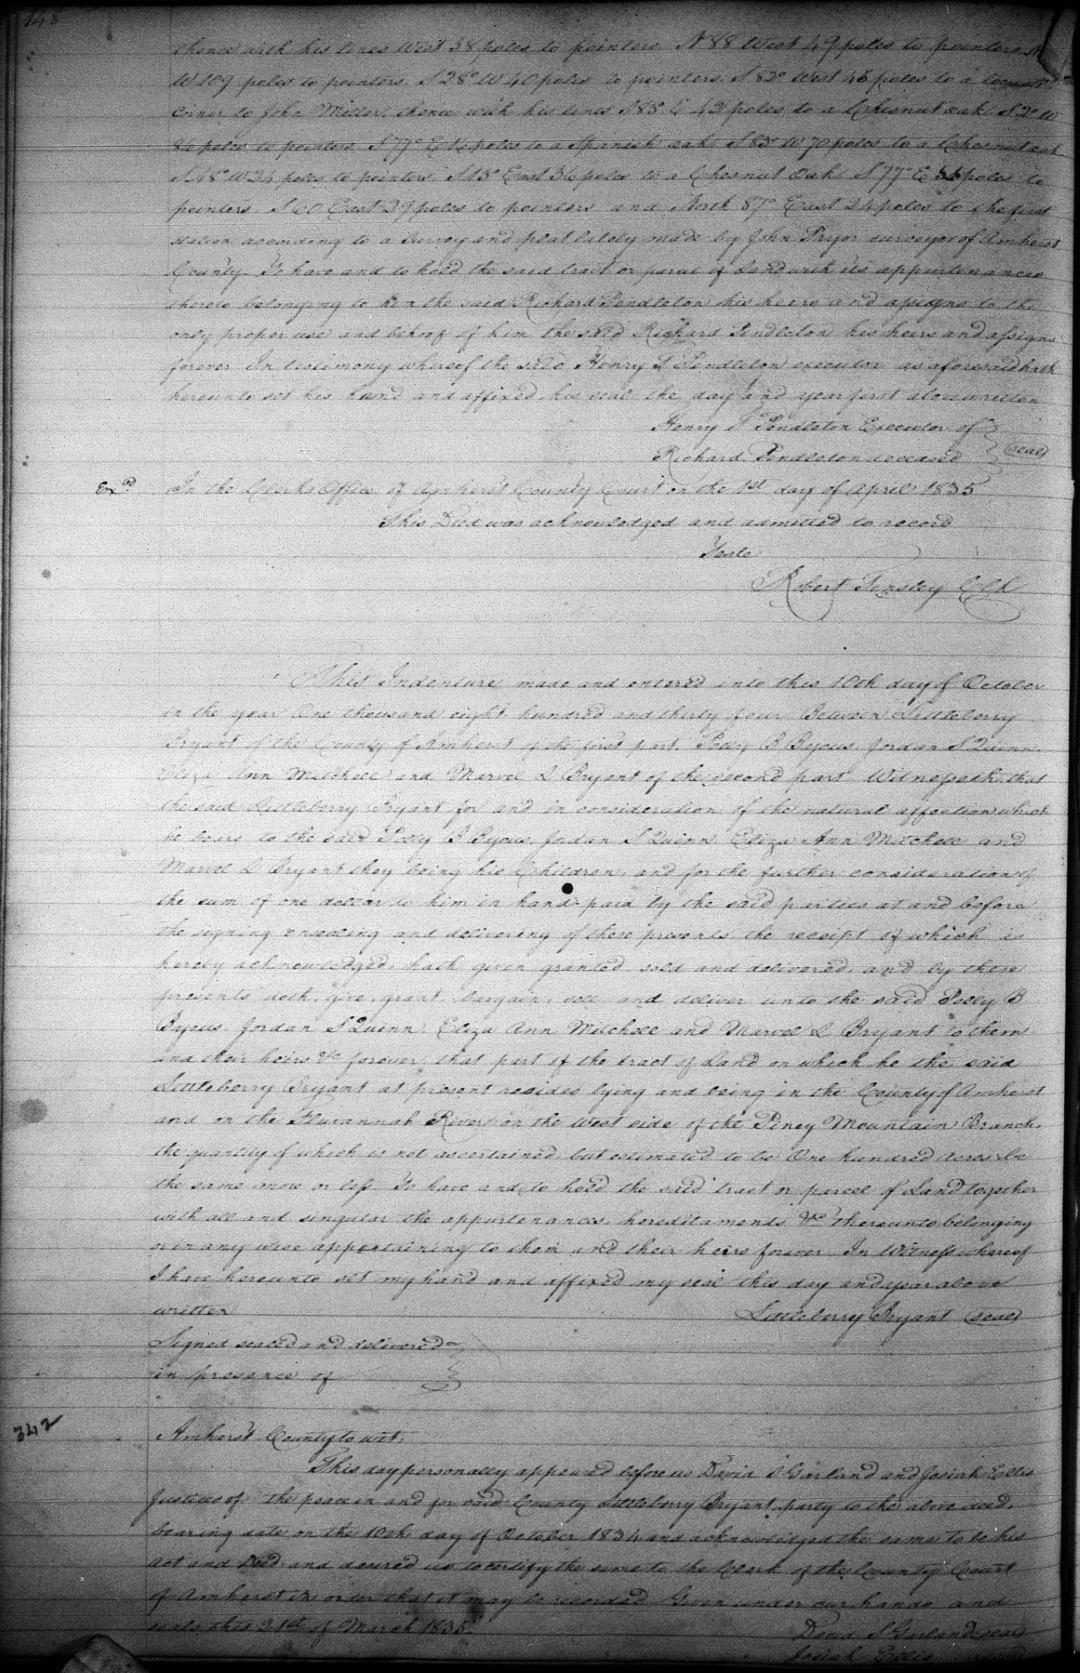 148
thence with his lines West 38 poles to pointers N 88 West 49 poles to pointers N
W 109 poles to pointers. S 28° W 40 poles to pointers. S 82° West 46 poles to a locust
Corner to John Miller thence with his lines S 85° E 43 poles to a Chesnut oak S 2° W
poles to pointers S 77° E poles to a Spanish oak S 83° W 70 poles to a Chesnut oak
S 18° W 24 poles to pointers S 13° East 36 poles to a Chesnut Oak S 77° E poles to
pointers. S 60 East 29 poles to pointers and North 87° East 24 poles to the first
station according to a Survey and plat lately made by John Pryor surveyor of Amherst
County. To have and to hold the said tract or parcel of Land with its appurtenances
thereto belonging to him the said Richard Pendleton his heirs and assigns to the
only proper use and behoof of him the said Richard Pendleton his heirs and assigns
forever In testimony whereof the said Henry Pendleton executor as aforesaid hath
hereunto set his hand and affixed his seal the day and year first above written
Henry Pendleton Executor of
Richard Pendleton deceased (seal)
Exd In the Clerks Office of Amherst County Court on the 1st day of April 1835
This Deed was acknowledged and admitted to record
Teste
Robert Tinsley Clk
This Indenture made and entered into this 10th day of October
in the year One thousand eight hundred and thirty four Between Littleberry
Bryant of the County of Amherst of the first part. Polly B Byous Jordan S Quinn
Eliza Ann Mitchell and Marvel L Bryant of the second part Witnesseth that
the said Littleberry Bryant for and in consideration of the natural affection which
he bears to the said Polly B Byous Jordan S Quinn Eliza Ann Mitchell and
Marvel L Bryant they being his Children and for the further consideration of
the sum of one dollar to him in hand paid by the said parties at and before
the signing ensealing and delivering of these presents the receipt of which is
hereby acknowledged hath given granted sold and delivered, and by these
presents doth give, grant, bargain, sell and deliver unto the said Polly B
Byous Jordan S Quinn Eliza Ann Mitchell and Marvel L Bryant to them
and their heirs &c forever, that part of the tract of Land on which he the said
Littleberry Bryant at present resides lying and being in the County of Amherst
and on the Fluvannah River on the West side of the Piney Mountain Branch,
the quantity of which is not ascertained, but estimated to be One hundred Acres be
the same more or less To have and to hold the said tract or parcel of Land together
with all and singular the appurtenances, hereditaments &c thereunto belonging
or in any wise appertaining to them and their heirs forever In Witness whereof
I have hereunto set my hand and affixed my seal this day and year above
written Littleberry Bryant (seal)
Signed sealed and delivered
in presence of
342
Amherst County to wit,
This day personally appeared before us David S Garland and Josiah Ellis
Justices of the peace in and for said County Littleberry Bryant party to the above deed,
bearing date on the 10th day of October 1834 and acknowledged the same to be his
act and deed and desired us to certify the same to the Clerk of the County Court
of Amherst in order that it may be recorded Given under our hands and
seals this 21st of March 1835
David S Garland (seal)
Josiah Ellis